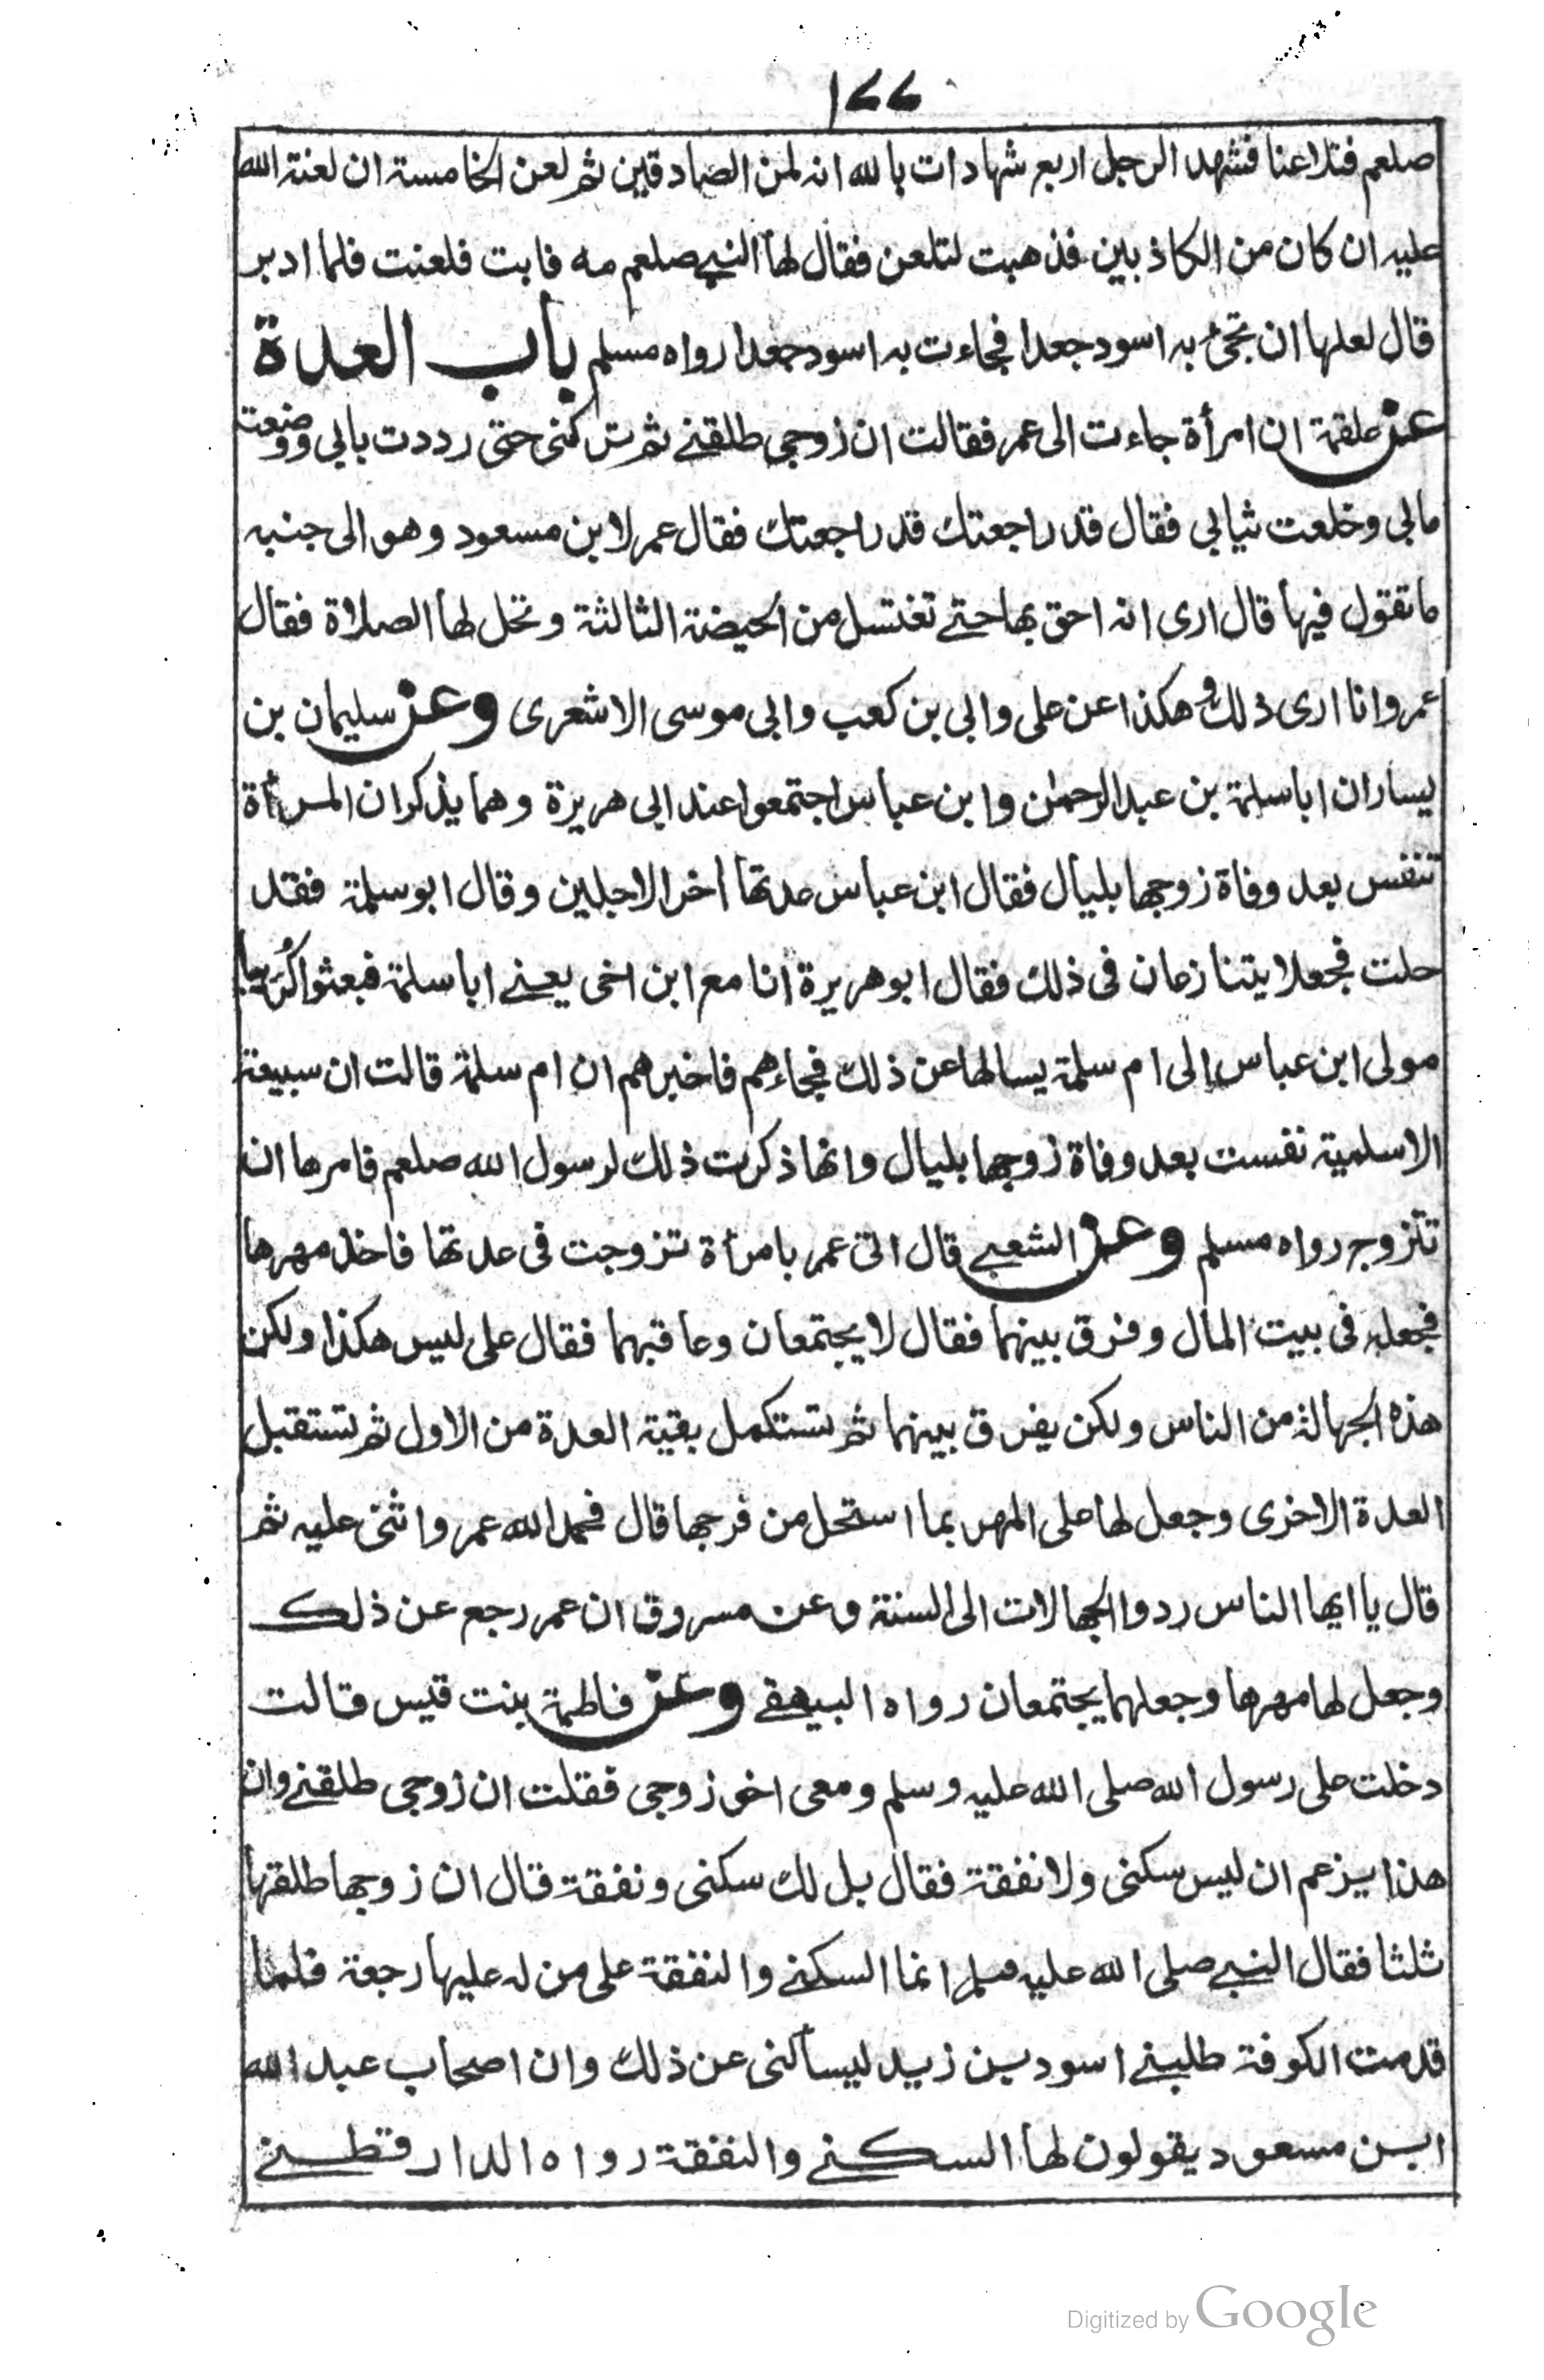 ١٢٢
صلعم فتلاعنا فشهد الرجل اربع شهادات بالله انه لمن الصادقين ثم لعن الخامسة ان لعنة الله
عليه ان كان من الكاذبين فذهبت لتلعن فقال لها النبي صلعم مه فابت فلعنت فلما ادبر
قال لعلها ان تجئ به اسود جعدا فجاءت به اسود جعدا رواه مسلم باب العدة
عن علقمة ان امرأة جاءت الى عمر فقالت ان زوجي طلقني ثم تركني حتى رددت بابي ووضعت
مابي وخلعت ثيابي فقال قد راجعتك قد راجعتك فقال عمر لابن مسعود وهو الى جنبه
ما تقول فيها قال ارى انه احق بها حتى تغتسل من الحيضة الثالثة وتحل لها الصلاة فقال
عمر وانا ارى ذلك وهكذا عن على وابي بن كعب وابي موسى الاشعرى وعن سليمان بن
يسار ان ابا سلمة بن عبدالرحمن وابن عباس اجتمعوا عند ابى هريرة وهما يذكران المرأة
تنفس بعد وفاة زوجها بليال فقال ابن عباس عدتها اخر الاجلين وقال ابو سلمة فقد
حلت فجعلا يتنازعان فى ذلك فقال ابو هريرة انا مع ابن اخى يعنى ابا سلمة فبعثوا كُرَيبا
مولى ابن عباس الى ام سلمة يسالها عن ذلك فجاءهم فاخبرهم ان ام سلمة قالت ان سبيعة
الاسلمية نفست بعد وفاة زوجها بليال وانها ذكرت ذلك لرسول الله صلعم فامرها ان
تتزوج رواه مسلم وعن الشعبي قال اتى عمر بامرأة تزوجت فى عدتها فاخذ مهرها
فجعله فى بيت المال وفرق بينهما فقال لا يجتمعان وعاقبهما فقال على ليس هكذا ولكن
هذه الجهالة من الناس ولكن يفرق بينهما ثم تستكمل بقية العدة من الاول ثم تستقبل
العدة الاخرى وجعل لها على المهر بما استحل من فرجها قال فحمد الله عمر واثنى عليه ثم
قال يا ايها الناس ردوا الجهالات الى السنة وعن مسروق ان عمر رجع عن ذلك
وجعل لها مهرها وجعلهما يجتمعان رواه البيهقي وعن فاطمة بنت قيس قالت
دخلت على رسول الله صلى الله عليه وسلم ومعى اخو زوجى فقلت ان زوجى طلقني وان
هذا يزعم ان ليس سكنى ولا نفقة فقال بل لك سكنى ونفقة قال ان زوجها طلقها
ثلثا فقال النبي صلى الله عليه وسلم انما السكنى والنفقة على من له عليها رجعة فلما
قدمت الكوفة طلبني اسود بن زيد ليسألنى عن ذلك وان اصحاب عبد الله
ابن مسعود يقولون لها السكنى والنفقة رواه الدارقطني
Digitized by Google